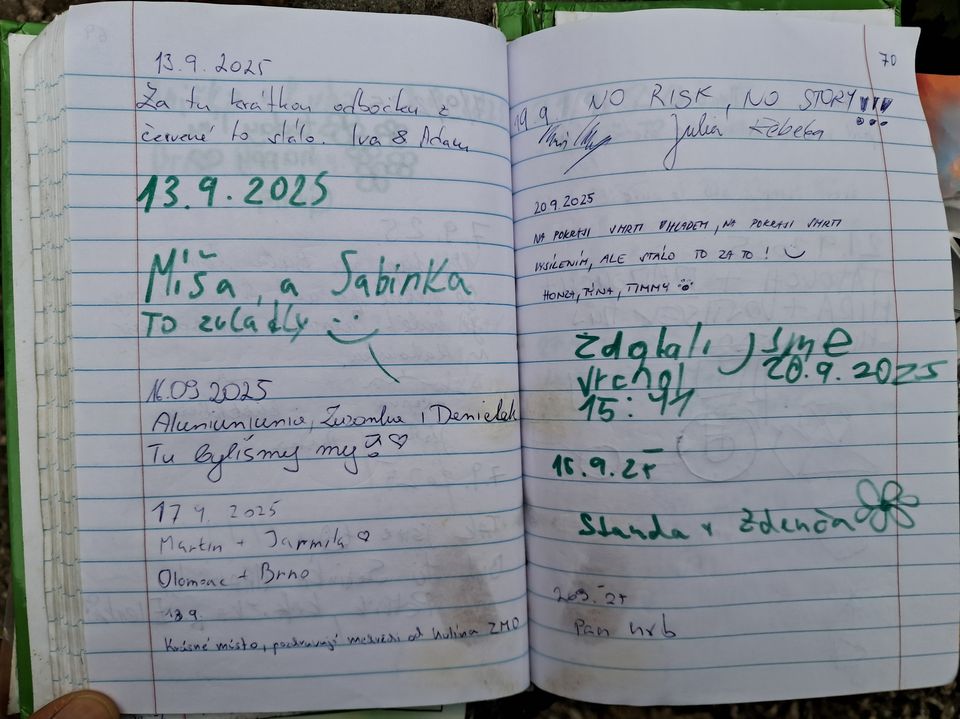 13.9.2025
Za tu krátkou odbočku z
červené to stálo. Iva & Adam
13.9.2025
Míša, a Sabinka
TO zvládly
16.09 2025
Zuzanka i Danielek
Tu byliśmy my
17 9. 2025
Martin + Jarmila
Olomouc + Brno
18.9.
Krásné místo, pozdravují medvědi od Kulína ZMO
70
NO RISK, NO STORY!!!
19.9
Julia Rebeka
20.9.2025
NA POKRAJI SMRTI HLADEM, NA POKRAJI SMRTI
VYSÍLENÍM, ALE STÁLO TO ZA TO!
HONZA, TÝNA, TIMMY
Zdolali jsme
vrchol 20.9.2025
15:41
Standa + Zdenča
Pan Hrb